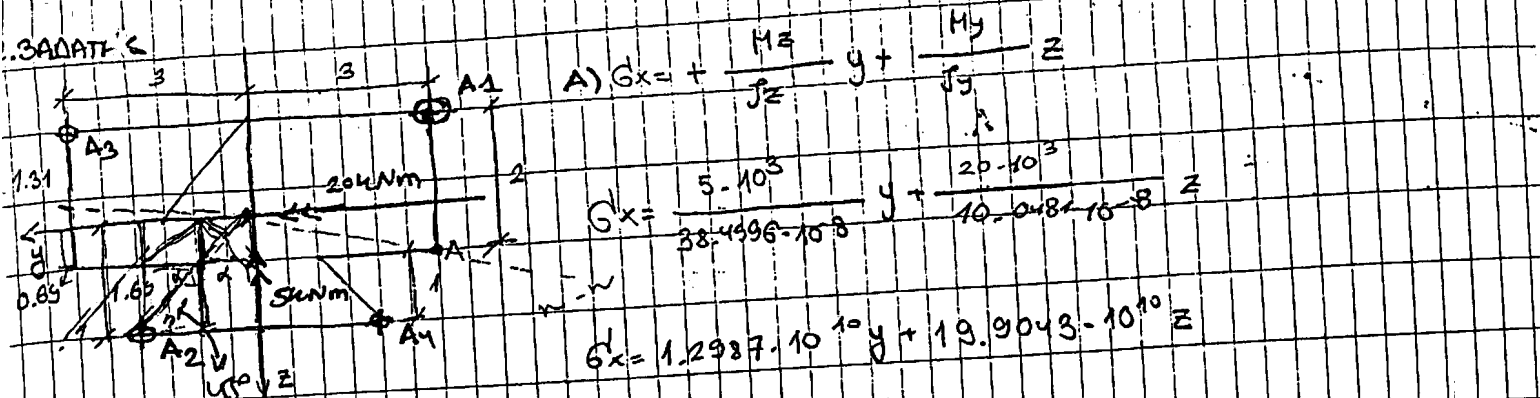 ЗАДАТАК
3 3
A1
A3
1.31
20kNm
2
y
A
0.69
1.69
α
5kNm
1
n-n
A2
A4
45°
z
A) σx = + Mz/Jz y + My/Jy z
σx = 5·10³/38.4996·10⁻⁸ y + 20·10³/10.0481·10⁻⁸ z
σx = 1.2987·10¹⁰ y + 19.9043·10¹⁰ z